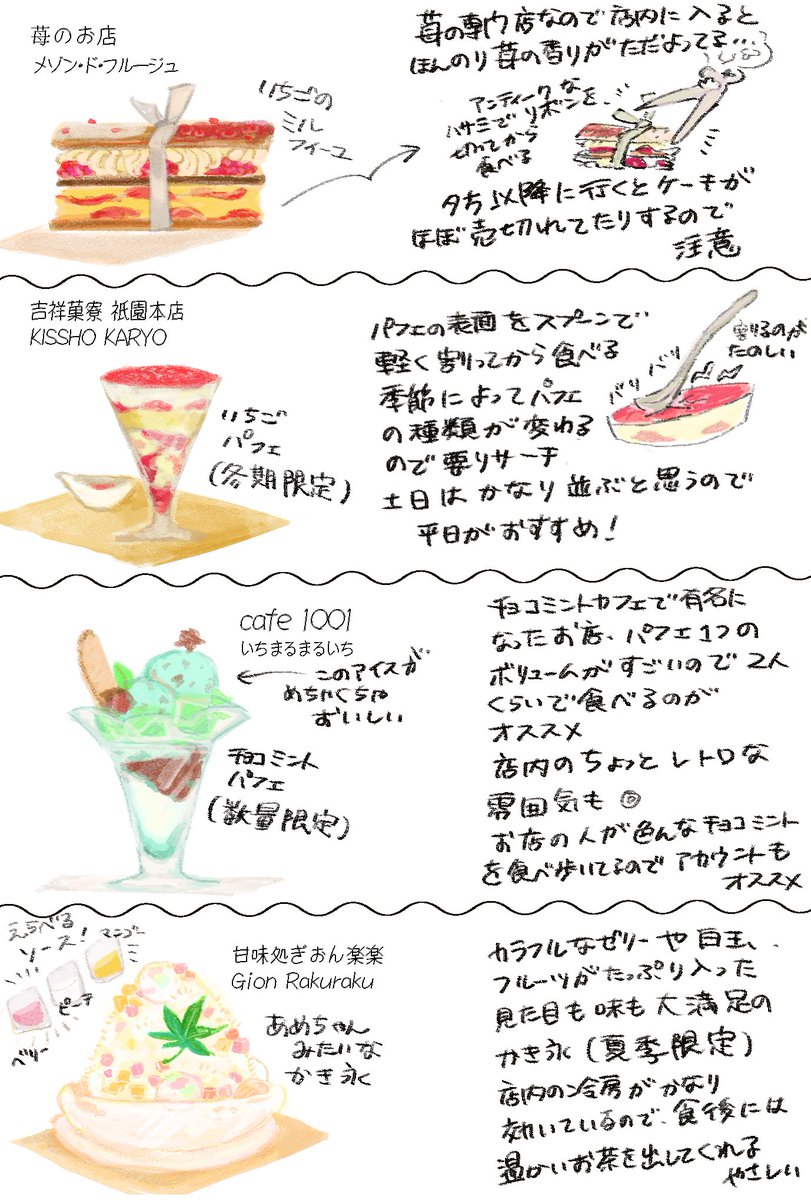 苺のお店
メゾン・ド・フルージュ
いちごの
ミル
フィーユ
苺の専門店なので店内に入ると
ほんのり苺の香りがただよってる…
アンティークな
ハサミでリボンを、
切ってから
食べる
夕方以降に行くとケーキが
ほぼ売切れてたりするので
注意
吉祥菓寮 祇園本店
KISSHO KARYO
いちご
パフェ
(冬期限定)
パフェの表面をスプーンで
軽く割ってから食べる
季節によってパフェ
の種類が変わる
ので要リサーチ
土日はかなり並ぶと思うので
平日がおすすめ!
バリ
バリ
割るのが
たのしい
cafe 1001
いちまるまるいち
このアイスが
めちゃくちゃ
おいしい
チョコミント
パフェ
(数量限定)
チョコミントカフェで有名に
なったお店、パフェ1つの
ボリュームがすごいので2人
くらいで食べるのが
オススメ
店内のちょっとレトロな
雰囲気も◎
お店の人が色んなチョコミント
を食べ歩いてるのでアカウントも
オススメ
えらべる
ソース!
マンゴー
ピーチ
ベリー
甘味処ぎおん楽楽
Gion Rakuraku
あめちゃん
みたいな
かき氷
カラフルなゼリーや白玉、
フルーツがたっぷり入った
見た目も味も大満足の
かき氷(夏季限定)
店内の冷房がかなり
効いているので、食後には
温かいお茶を出してくれる
やさしい